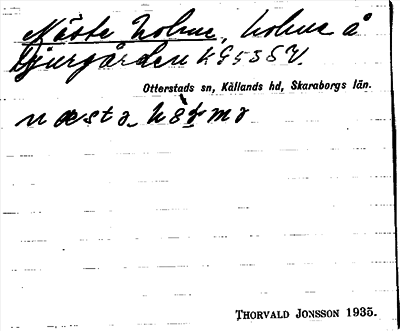 Näste holme, holme å
Djurgården kG53SV.
Otterstads sn, Kållands hd, Skaraborgs län.
næsta
THORVALD JONSSON 1935.